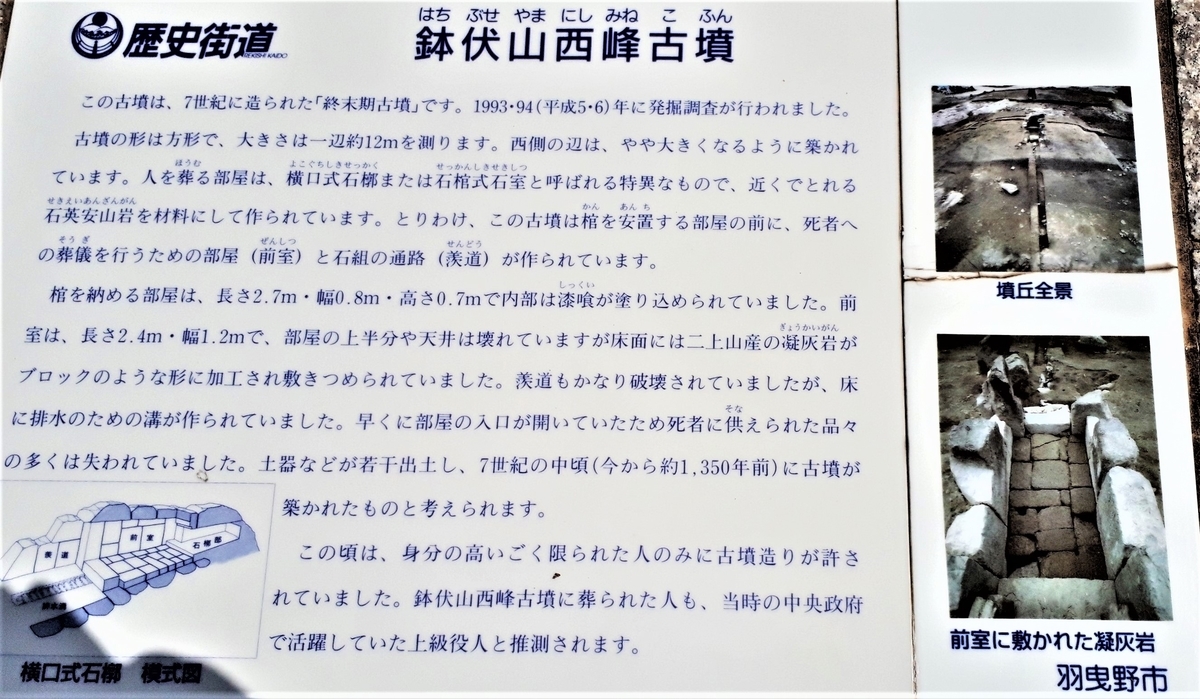 歴史街道
REKISHI KAIDO
はち ぶせ やま にし みね こ ふん
鉢伏山西峰古墳
この古墳は、7世紀に造られた「終末期古墳」です。1993・94(平成5・6)年に発掘調査が行われました。
古墳の形は方形で、大きさは一辺約12mを測ります。西側の辺は、やや大きくなるように築かれ
ほうむ よこぐちしきせっかく せっかんしきせきしつ
ています。人を葬る部屋は、横口式石槨または石棺式石室と呼ばれる特異なもので、近くでとれる
せきえいあんざんがん かん あん ち
石英安山岩を材料にして作られています。とりわけ、この古墳は棺を安置する部屋の前に、死者へ
そう ぎ ぜんしつ せんどう
の葬儀を行うための部屋(前室)と石組の通路(羨道)が作られています。
しっくい
棺を納める部屋は、長さ2.7m・幅0.8m・高さ0.7mで内部は漆喰が塗り込められていました。前
ぎょうかいがん
室は、長さ2.4m・幅1.2mで、部屋の上半分や天井は壊れていますが床面には二上山産の凝灰岩が
ブロックのような形に加工され敷きつめられていました。羨道もかなり破壊されていましたが、床
そな
に排水のための溝が作られていました。早くに部屋の入口が開いていたため死者に供えられた品々
の多くは失われていました。土器などが若干出土し、7世紀の中頃(今から約1,350年前)に古墳が
築かれたものと考えられます。
この頃は、身分の高いごく限られた人のみに古墳造りが許さ
れていました。鉢伏山西峰古墳に葬られた人も、当時の中央政府
で活躍していた上級役人と推測されます。
羨道
前室
石槨部
排水溝
横口式石槨 模式図
墳丘全景
前室に敷かれた凝灰岩
羽曳野市